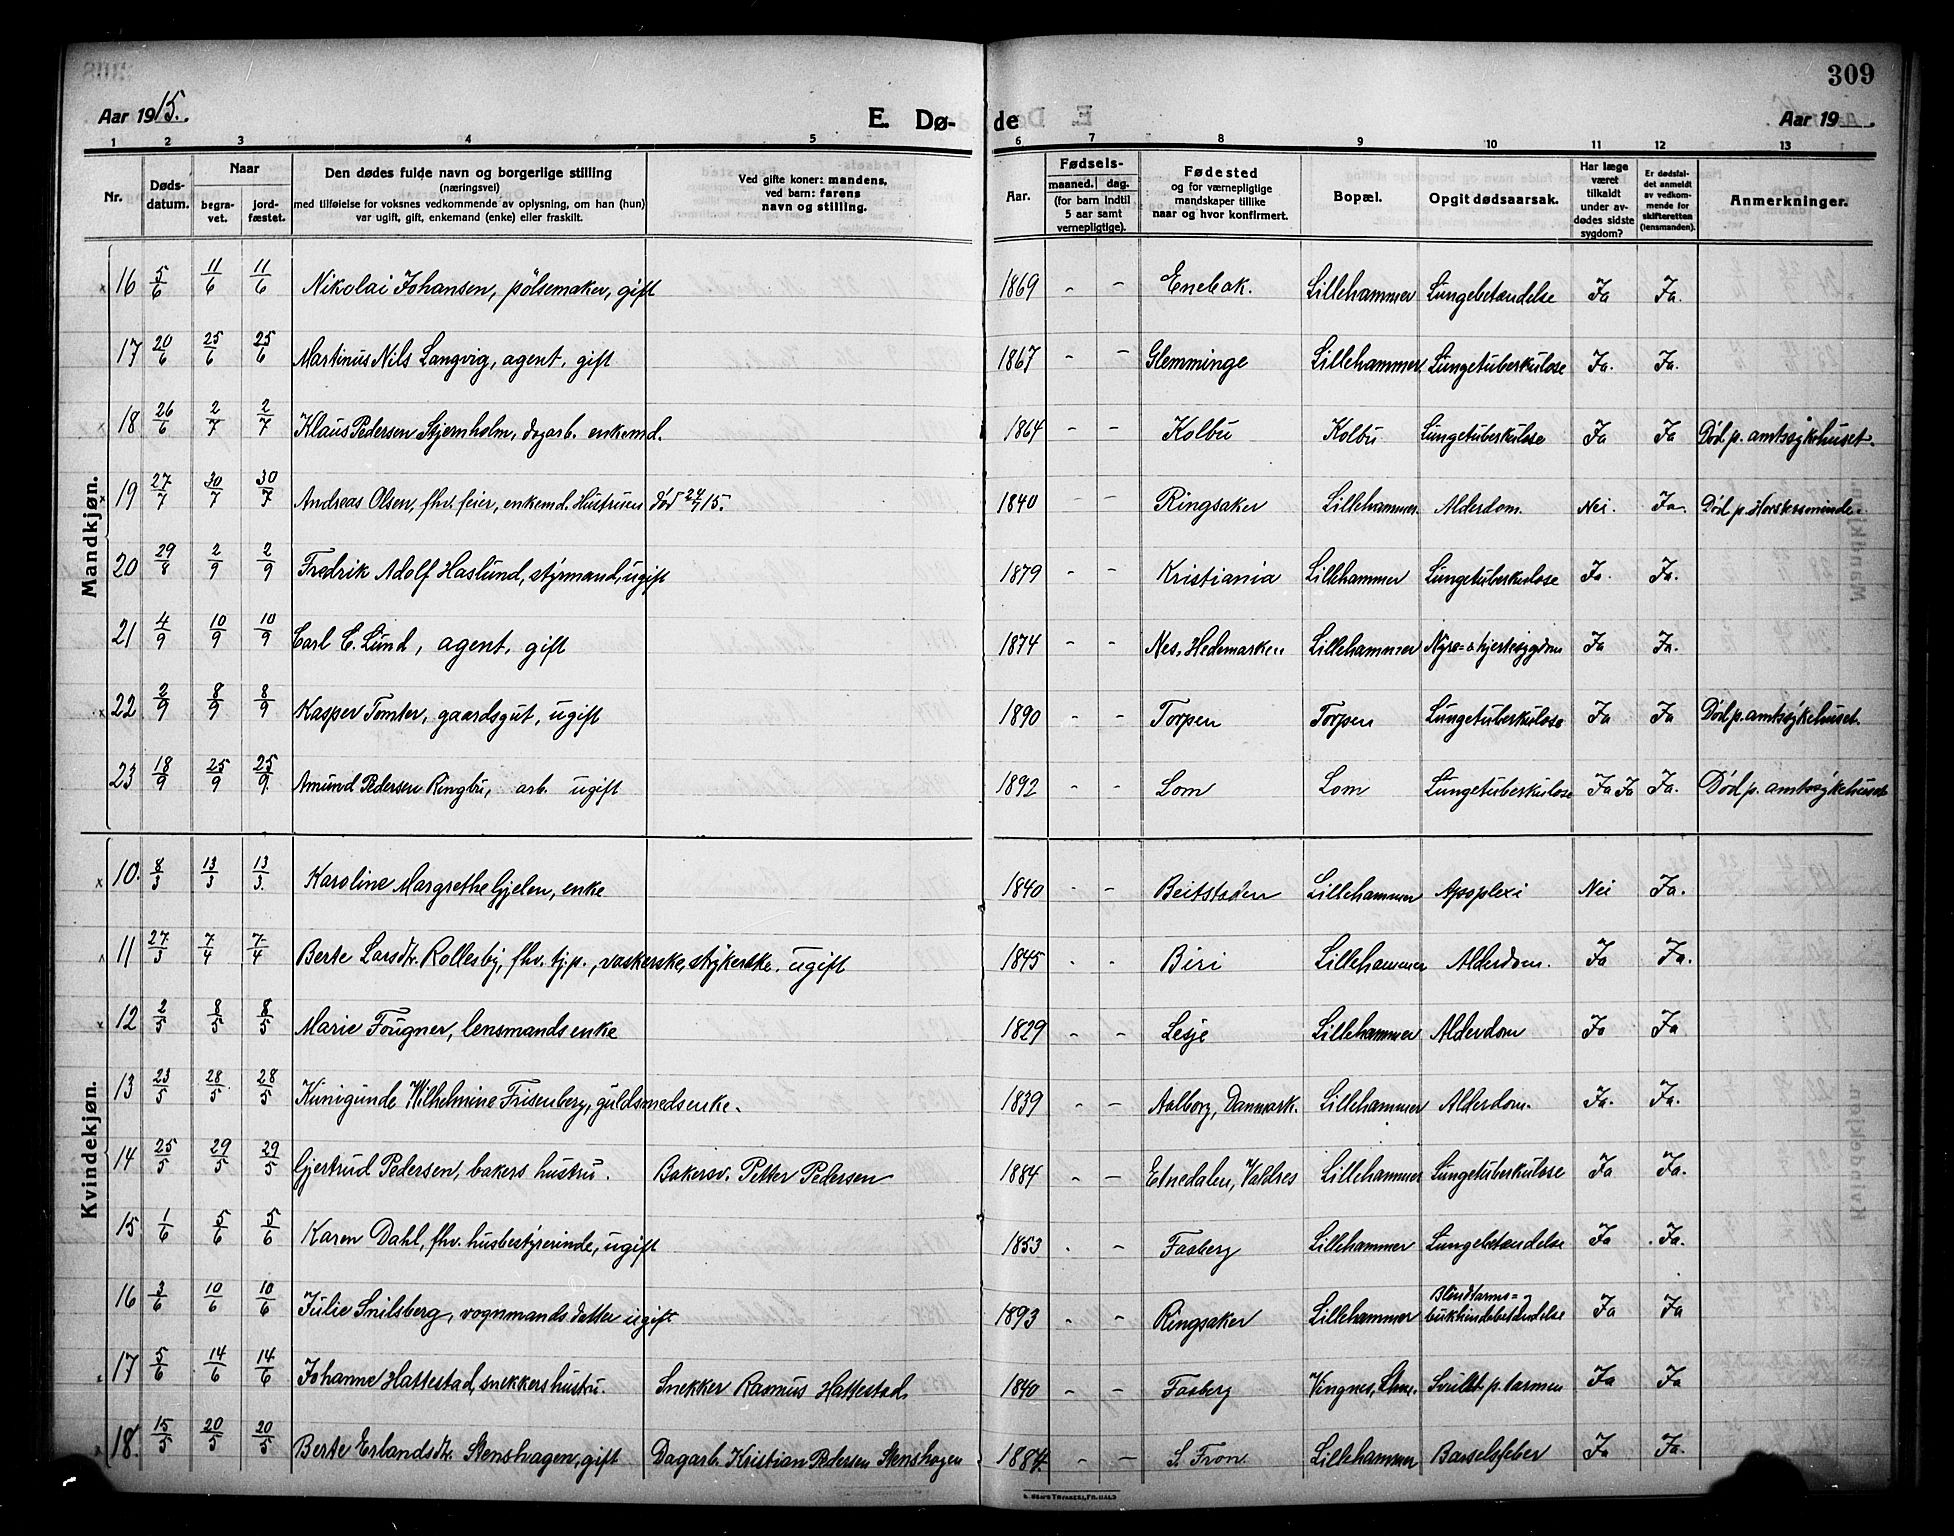 309
Aar 1915. E. Dø- de Aar 19
1 2 3 4 5 6 7 8 9 10 11 12 13
Nr. Døds-datum. Naar begra-vet. jord-fæstet. Den dødes fulde navn og borgerlige stilling (næringsvei) med tilføielse for voksnes vedkommende av oplysning, om han (hun) var ugift, gift, enkemand (enke) eller fraskilt. Ved gifte koner: mandens, ved barn: farens navn og stilling. Aar. Fødsels- maaned. dag. (for barn indtil 5 aar samt vernepligtige). Fødested og for værnepligtige mandskaper tillike naar og hvor konfirmert. Bopæl. Opgit dødsaarsak. Har læge været tilkaldt under av-dødes sidste sygdom? Er dødsfal-det anmeldt av vedkom-mende for skifteretten (lensmanden). Anmerkninger.
Mandkjøn.
16 5/6 11/6 11/6 Nikolai Johansen, pølsemaker, gift 1869 - - Enebak. Lillehammer Lungebetændelse Ja Ja.
17 20/6 25/6 25/6 Martinus Nils Langvig, agent, gift 1867 - - Glemminge Lillehammer Lungetuberkulose Ja. Ja.
18 26/6 2/7 2/7 Klaus Pedersen Stjernholm, dagarb. enkemd. 1864 - - Kolbu Kolbu Lungetuberkulose Ja Ja Død p. amtssykehuset.
19 27/7 30/7 30/7 Andreas Olsen, fhv. feier, enkemd. Hustruen død 24/7 15. 1840 - - Ringsaker Lillehammer Alderdom. Nei. Ja. Død p.
20 29/8 2/9 2/9 Fredrik Adolf Haslund, styrmand, ugift 1879 - - Kristiania Lillehammer Lungetuberkulose Ja. Ja.
21 4/9 10/9 10/9 Carl C. Lund, agent, gift 1874 - - Nes, Hedemarken Lillehammer Nyre- & hjertesygdom Ja Ja.
22 2/9 8/9 8/9 Kasper Tomter, gaardsgut, ugift 1890 - - Torpen Torpen Lungetuberkulose Ja Ja Død p. amtssykehuset.
23 18/9 25/9 25/9. Amund Pedersen Ringbu, arb. ugift 1892 - - Lom Lom Lungetuberkulose Ja Ja Ja. Død p. amtssykehuset
Kvindekjøn.
10. 8/3 13/3 13/3. Karoline Margrethe Gjelen, enke 1840 - - Beitstaden Lillehammer Apoplexi Nei Ja.
11 27/3 7/4 7/4 Berte Larsdtr. Rollesby, fhv. tj.p., vaskerske, strykerske. ugift 1845 - - Biri Lillehammer Alderdom. Ja Ja.
12 2/5 8/5 8/5 Marie Fougner, lensmandsenke 1829 - - Lesje Lillehammer Alderdom Ja Ja
13 23/5 28/5 28/5 Kunigunde Wilhelmine Frisenberg, guldsmedsenke. 1839 - - Aalborg, Danmark. Lillehammer Alderdom. Ja. Ja.
14 25/5 29/5 29/5 Gjertrud Pedersen, bakers hustru. Bakersv. Petter Pedersen 1884 - - Etnedalen, Valdres Lillehammer Lungetuberkulose Ja Ja.
15 1/6 5/6 5/6 Karen Dahl, fhv. husbestyrerinde, ugift 1853 - - Faaberg Lillehammer Lungebetændelse Ja Ja.
16 3/6 10/6 10/6 Julie Snilsberg, vognmands datter ugift 1893 - - Ringsaker Lillehammer Blindtarms- og bukhindebetændelse Ja Ja
17 5/6 14/6 14/6 Johanne Hattestad, snekkershustru. Snekker Rasmus Hattestad, 1840 - - Faaberg Vingnes, Svulst p. tarmen Ja Ja
18. 15/5 20/5 20/5 Berte Erlandsdtr. Stenshagen, gift Dagarb. Kristian Pedersen Stenshagen 1884. - - S. Fron Lillehammer Barselsfeber Ja Ja.